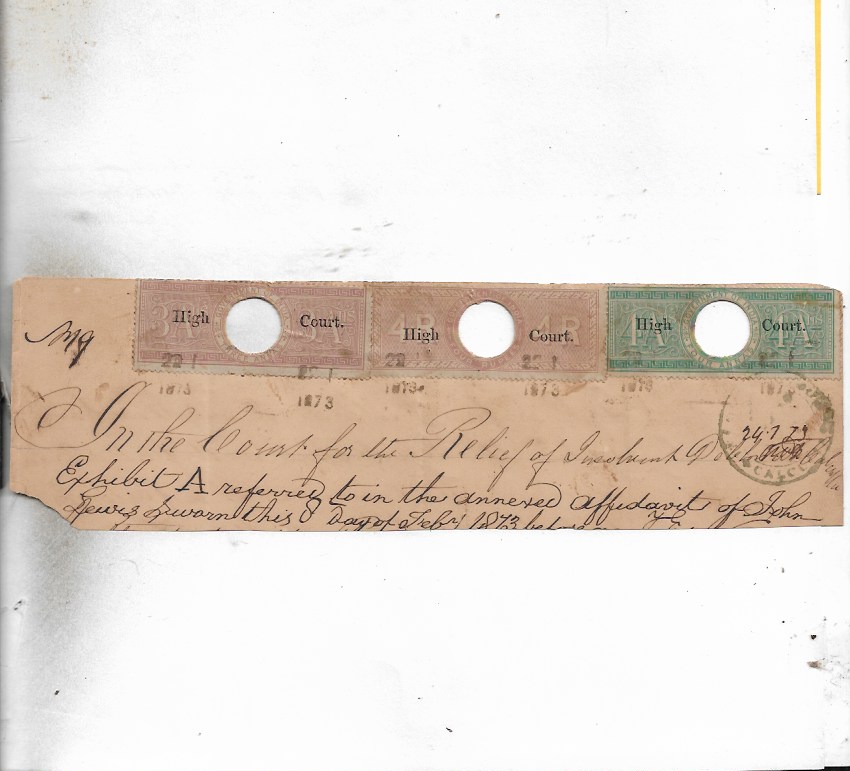 3A High Court.
4R High Court. 4R
4A High Court. 4A
22 1 22 1 22 1 22 1 22
1873 1873 1873 1873 1873 187
In the Court for the Relief of Insolvent
24.1.73
CALC
Exhibit A referred to in the annexed affidavit of John
Lewis Sworn this day of Feby 1873 before